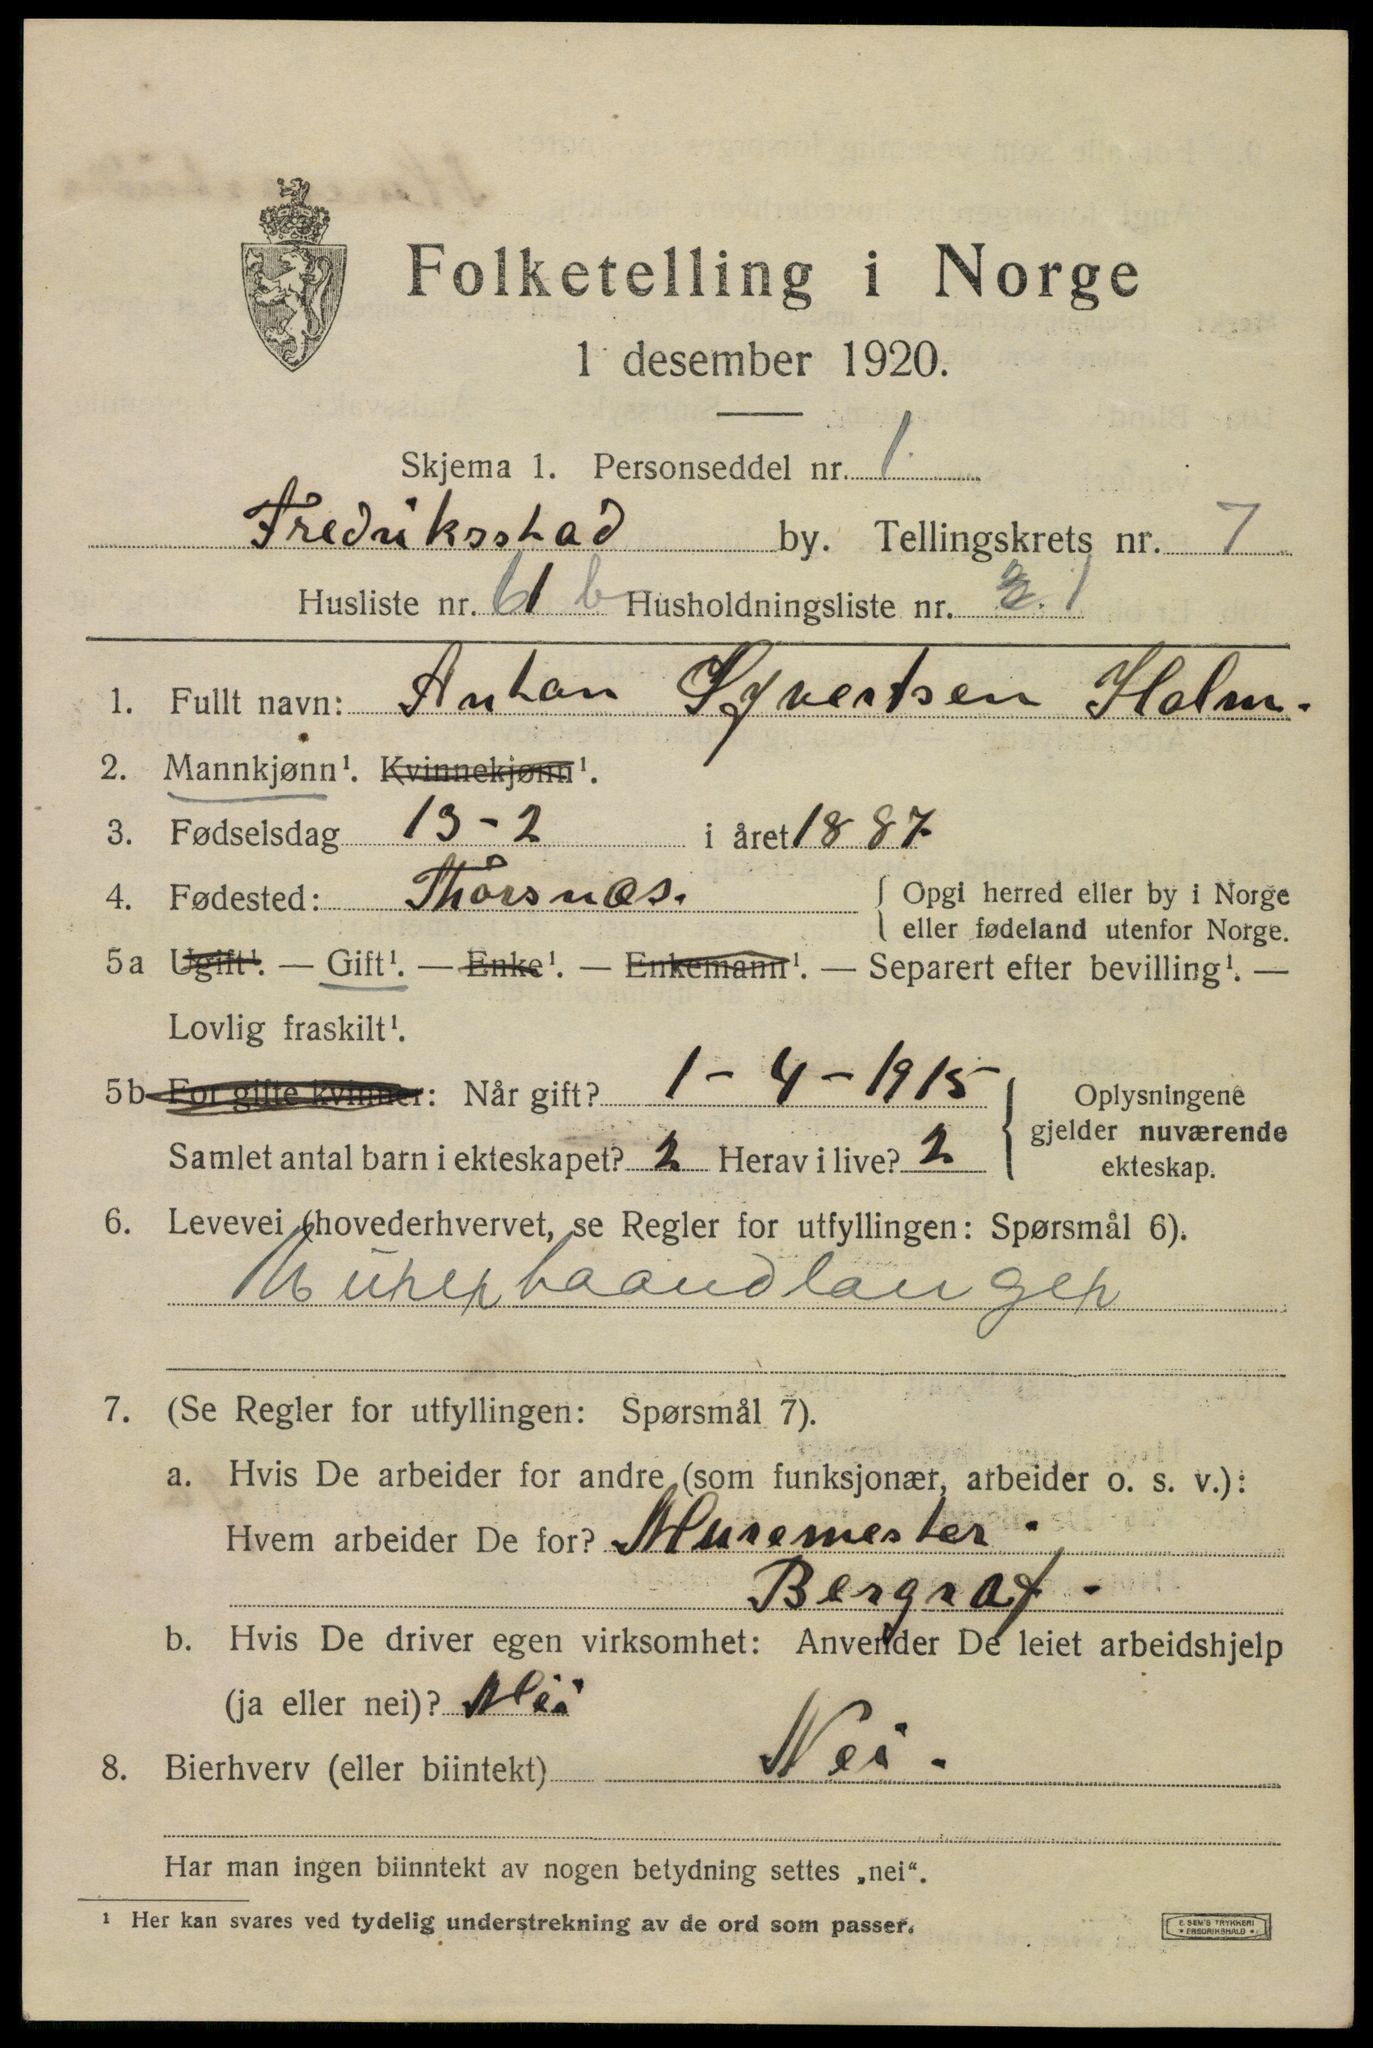 Folketelling i Norge
1 desember 1920.
Skjema 1. Personseddel nr. 1
Fredriksstad by. Tellingskrets nr. 7
Husliste nr. 61 b Husholdningsliste nr. 2. 1
1. Fullt navn: Anton Syvertsen Holm.
2. Mannkjønn¹. Kvinnekjønn¹.
3. Fødselsdag 13-2 i året 1887
4. Fødested: Thorsnæs. { Opgi herred eller by i Norge
eller fødeland utenfor Norge.
5a Ugift¹. — Gift¹. — Enke¹. — Enkemann¹. — Separert efter bevilling¹. —
Lovlig fraskilt¹.
5b For gifte kvinner: Når gift? 1-4-1915 { Oplysningene
gjelder nuværende
ekteskap.
Samlet antal barn i ekteskapet? 2 Herav i live? 2
6. Levevei (hovederhvervet, se Regler for utfyllingen: Spørsmål 6).
Murerhaandlanger
7. (Se Regler for utfyllingen: Spørsmål 7).
a. Hvis De arbeider for andre (som funksjonær, arbeider o. s. v.):
Hvem arbeider De for? Muremester.
Bergraf -
b. Hvis De driver egen virksomhet: Anvender De leiet arbeidshjelp
(ja eller nei)? Nei
8. Bierhverv (eller biintekt) Nei.
Har man ingen biinntekt av nogen betydning settes „nei“.
¹ Her kan svares ved tydelig understrekning av de ord som passer.
E. SEM'S TRYKKERI
* FREDRIKSHALD *